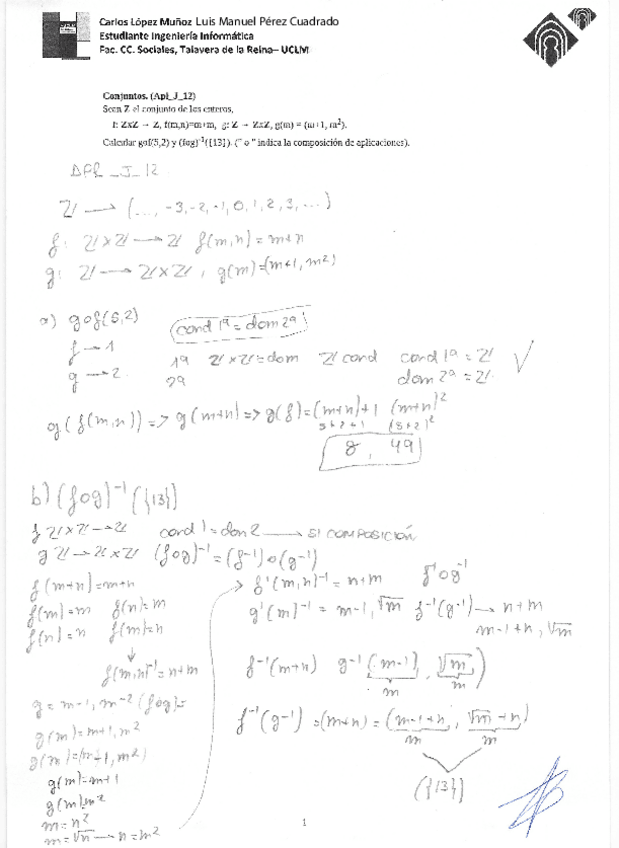 Carlos López Muñoz Luis Manuel Pérez Cuadrado
Estudiante Ingeniería Informática
Fac. CC. Sociales, Talavera de la Reina– UCLM
Conjuntos. (Apl_J_12)
Sean Z el conjunto de los enteros,
f: ZxZ → Z, f(m,n)=m+n, g: Z → ZxZ, g(m) = (m+1, m²).
Calcular gof(5,2) y (fog)⁻¹({13}). (" o " indica la composición de aplicaciones).
APL_J_12
Z → (..., -3, -2, -1, 0, 1, 2, 3, ...)
f: Z x Z → Z f(m,n) = m+n
g: Z → Z x Z, g(m)=(m+1, m²)
a) gof(5,2) cond 1ª = dom 2ª
f → 1
g → 2
1ª Z x Z = dom Z cond cond 1ª = Z √
2ª dom 2ª = Z
g(f(m,n)) => g(m+n) => g(f) = (m+n)+1 (m+n)²
5+2+1 (5+2)²
8, 49
b) (fog)⁻¹({13})
f Z x Z → Z cond 1 = dom 2 → SI COMPOSICIÓN
g Z → Z x Z (fog)⁻¹ = (f⁻¹)o(g⁻¹)
f(m+n)=m+n
f(m)=m f(n)=m
f(n)=n f(m)=n
↓
f(m,n)⁻¹=n+m
g = m-1, m⁻² (fog)=
g(m)=m+1, m²
g(m)=(m+1, m²)
g(m)=m+1
g(m) m²
m=n²
m=√n → n=m²
f'(m,n)⁻¹ = n+m f⁻¹og⁻¹
g'(m)⁻¹ = m-1, √m f⁻¹(g⁻¹) → n+m
m-1+n, √m
f⁻¹(m+n) g⁻¹(m-1, √m)
m m
f⁻¹(g⁻¹) =(m+n) = (m-1+n, √m+n)
m m
({13})
1